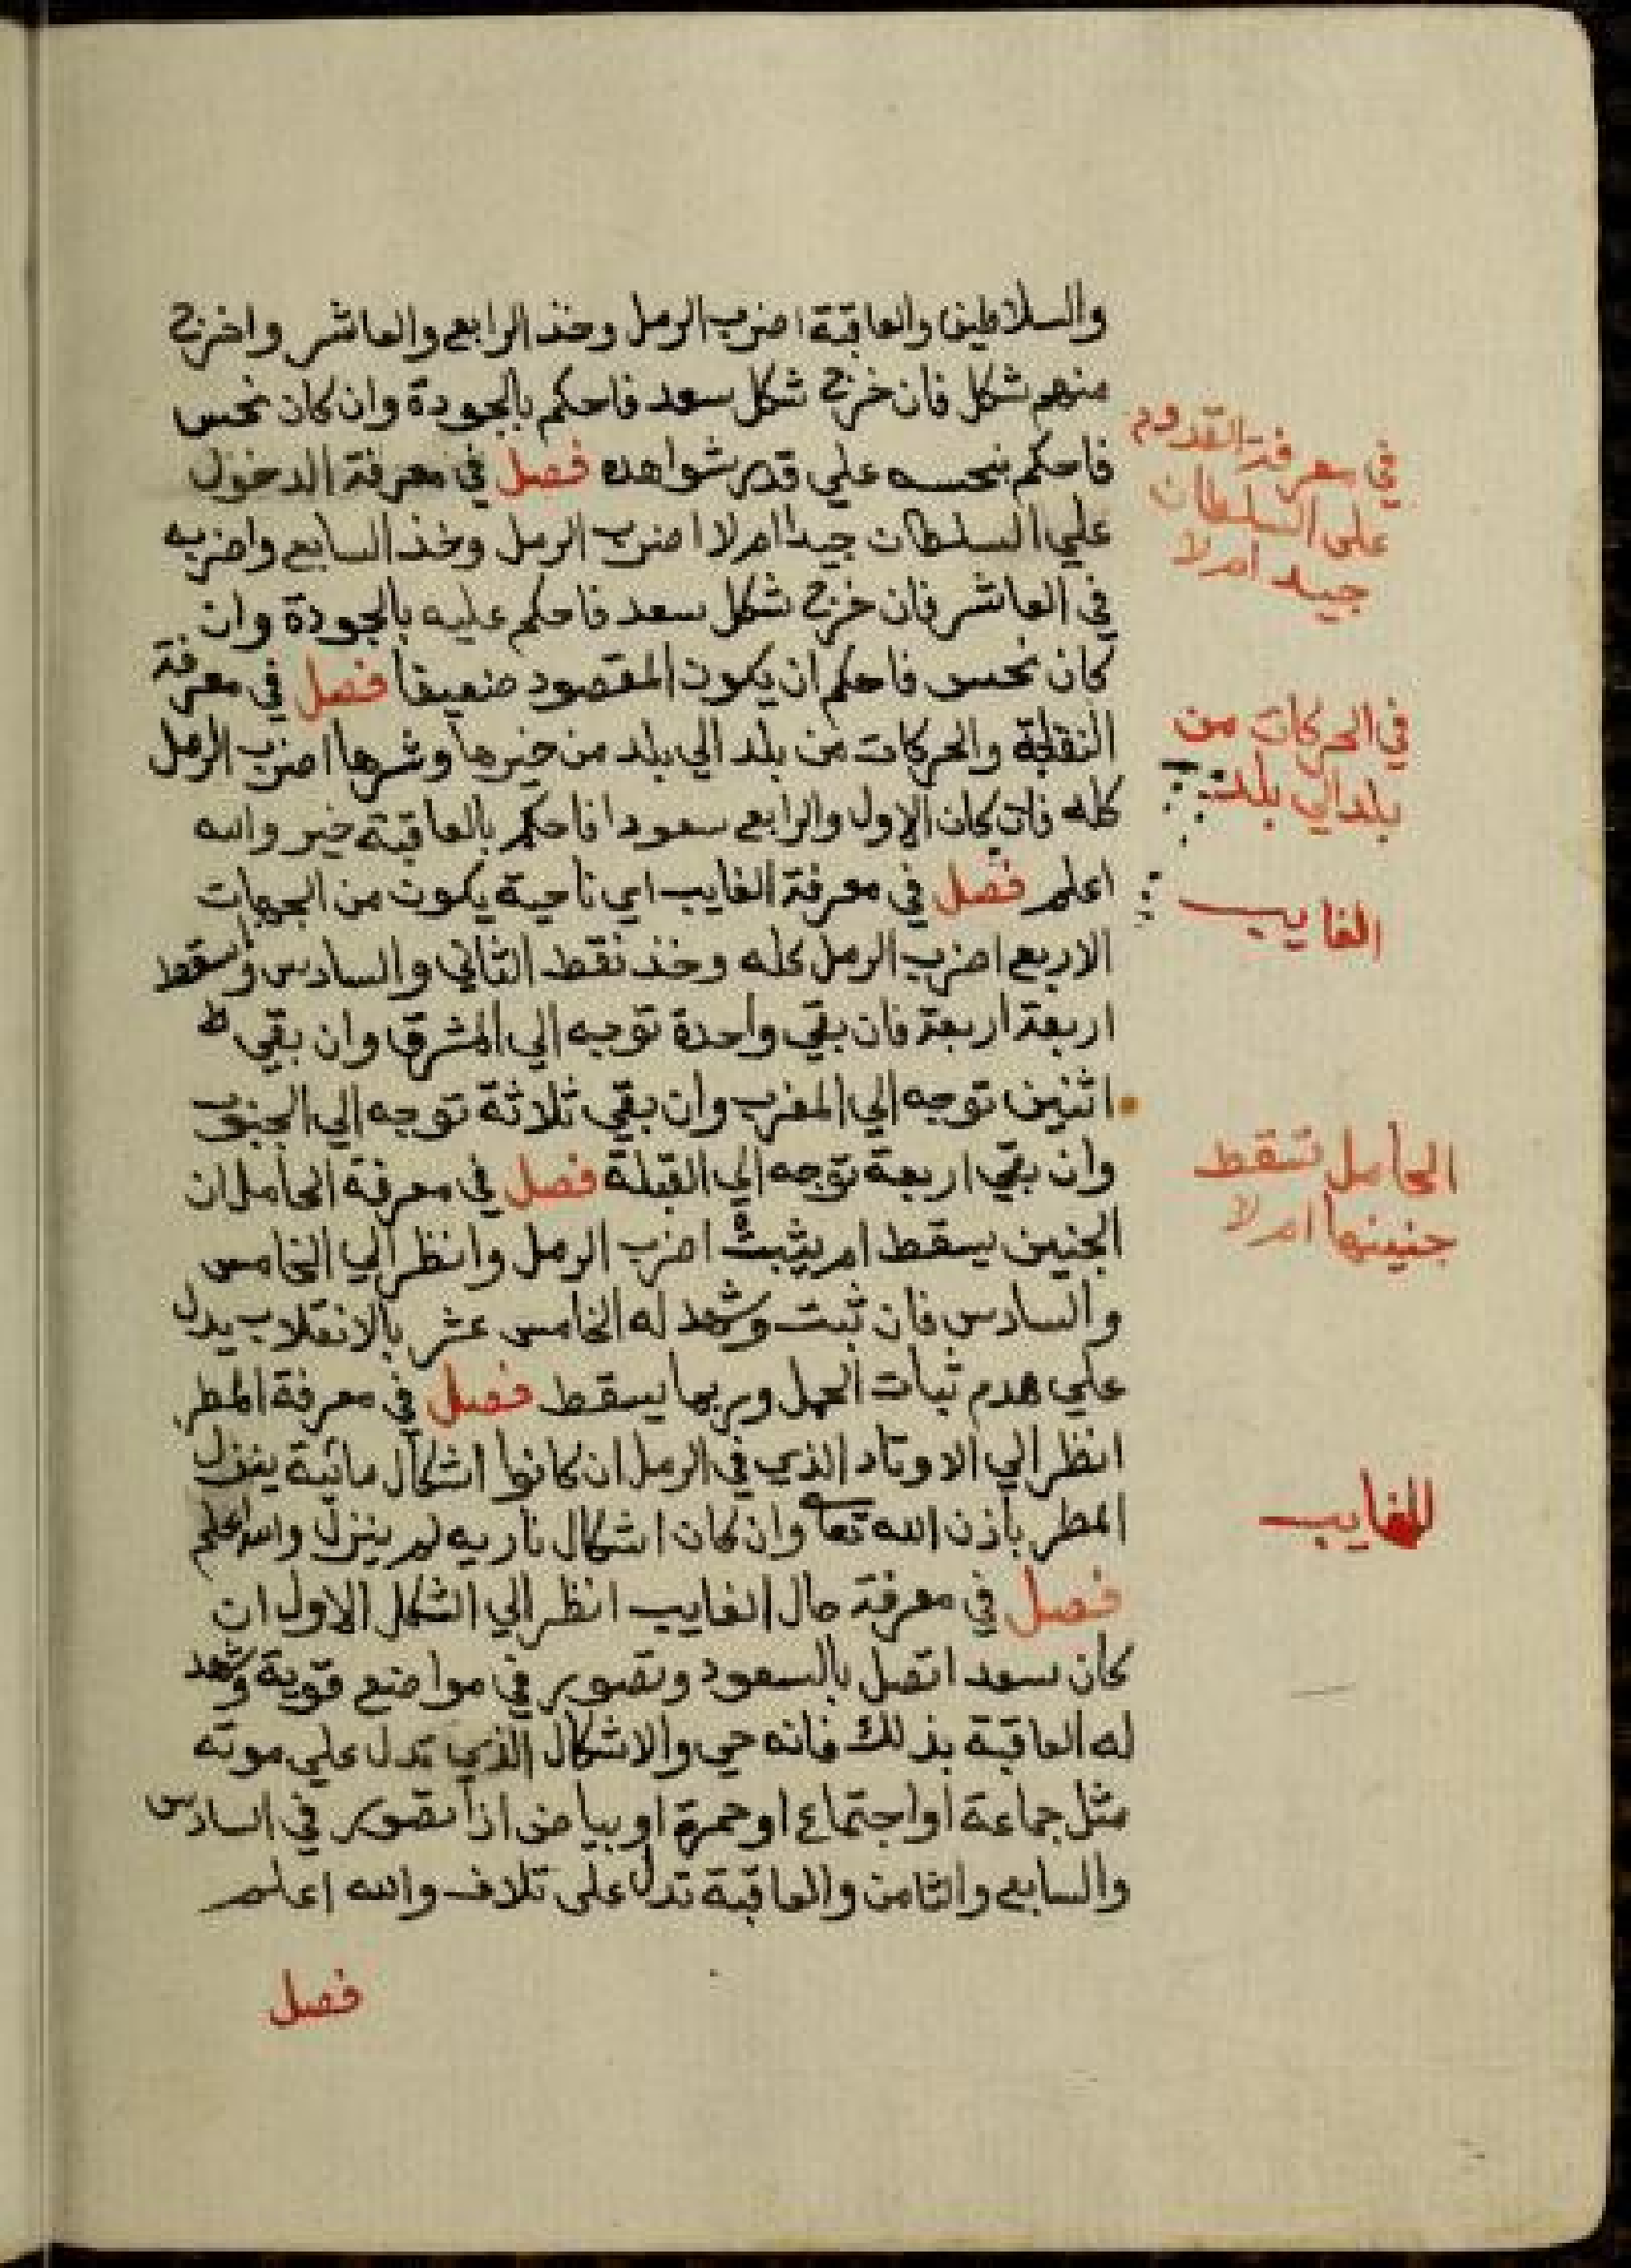 والسلاطين والعاقبة اضرب الرمل وخذ الرابع والعاشر واخرج
منهم شكل فان خرج شكل سعد فاحكم بالجودة وان كان نحس
فاحكم بنحسه علي قدر شواهده فصل في معرفة الدخول
علي السلطان جيدا ام لا اضرب الرمل وخذ السابع واضربه
في العاشر فان خرج شكل سعد فاحكم عليه بالجودة وان
كان نحس فاحكم ان يكون المقصود ضعيفا فصل في معرفة
النقلة والحركات من بلد الي بلد من خيرها وشرها اضرب الرمل
كله فان كان الاول والرابع سعودا فاحكم بالعاقبة خير والله
اعلم فصل في معرفة الغايب اي ناحية يكون من الجهات
الاربع اضرب الرمل كله وخذ نقط الثاني والسادس واسقط
اربعة اربعة فان بقي واحدة توجه الي المشرق وان بقي
اثنين توجه الي المغرب وان بقي ثلاثة توجه الي الجنوب
وان بقي اربعة توجه الي القبلة فصل في معرفة الحامل ان
الجنين يسقط ام يثبت اضرب الرمل وانظر الي الخامس
والسادس فان ثبت وشهد له الخامس عشر بالانقلاب يدل
علي عدم ثبات الحمل وربما يسقط فصل في معرفة المطر
انظر الي الاوتاد الذي في الرمل ان كانوا اشكال مائية ينزل
المطر باذن الله تعا وان كان اشكال ناريه لم ينزل والله اعلم
فصل في معرفة حال الغايب انظر الي الشكل الاول ان
كان سعد اتصل بالسعود وتصور في مواضع قوية وشهد
له العاقبة بذلك فانه حي والاشكال الذي تدل علي موته
مثل جماعة او اجتماع او حمرة او بياض اذا تصور في السادس
والسابع والثامن والعاقبة تدل على تلاف والله اعلم
فصل
في معرفة القدوم
على السلطان
جيد ام لا
في الحركات من
بلد الي بلد
الغايب
الحامل تسقط
جنينها ام لا
للغايب